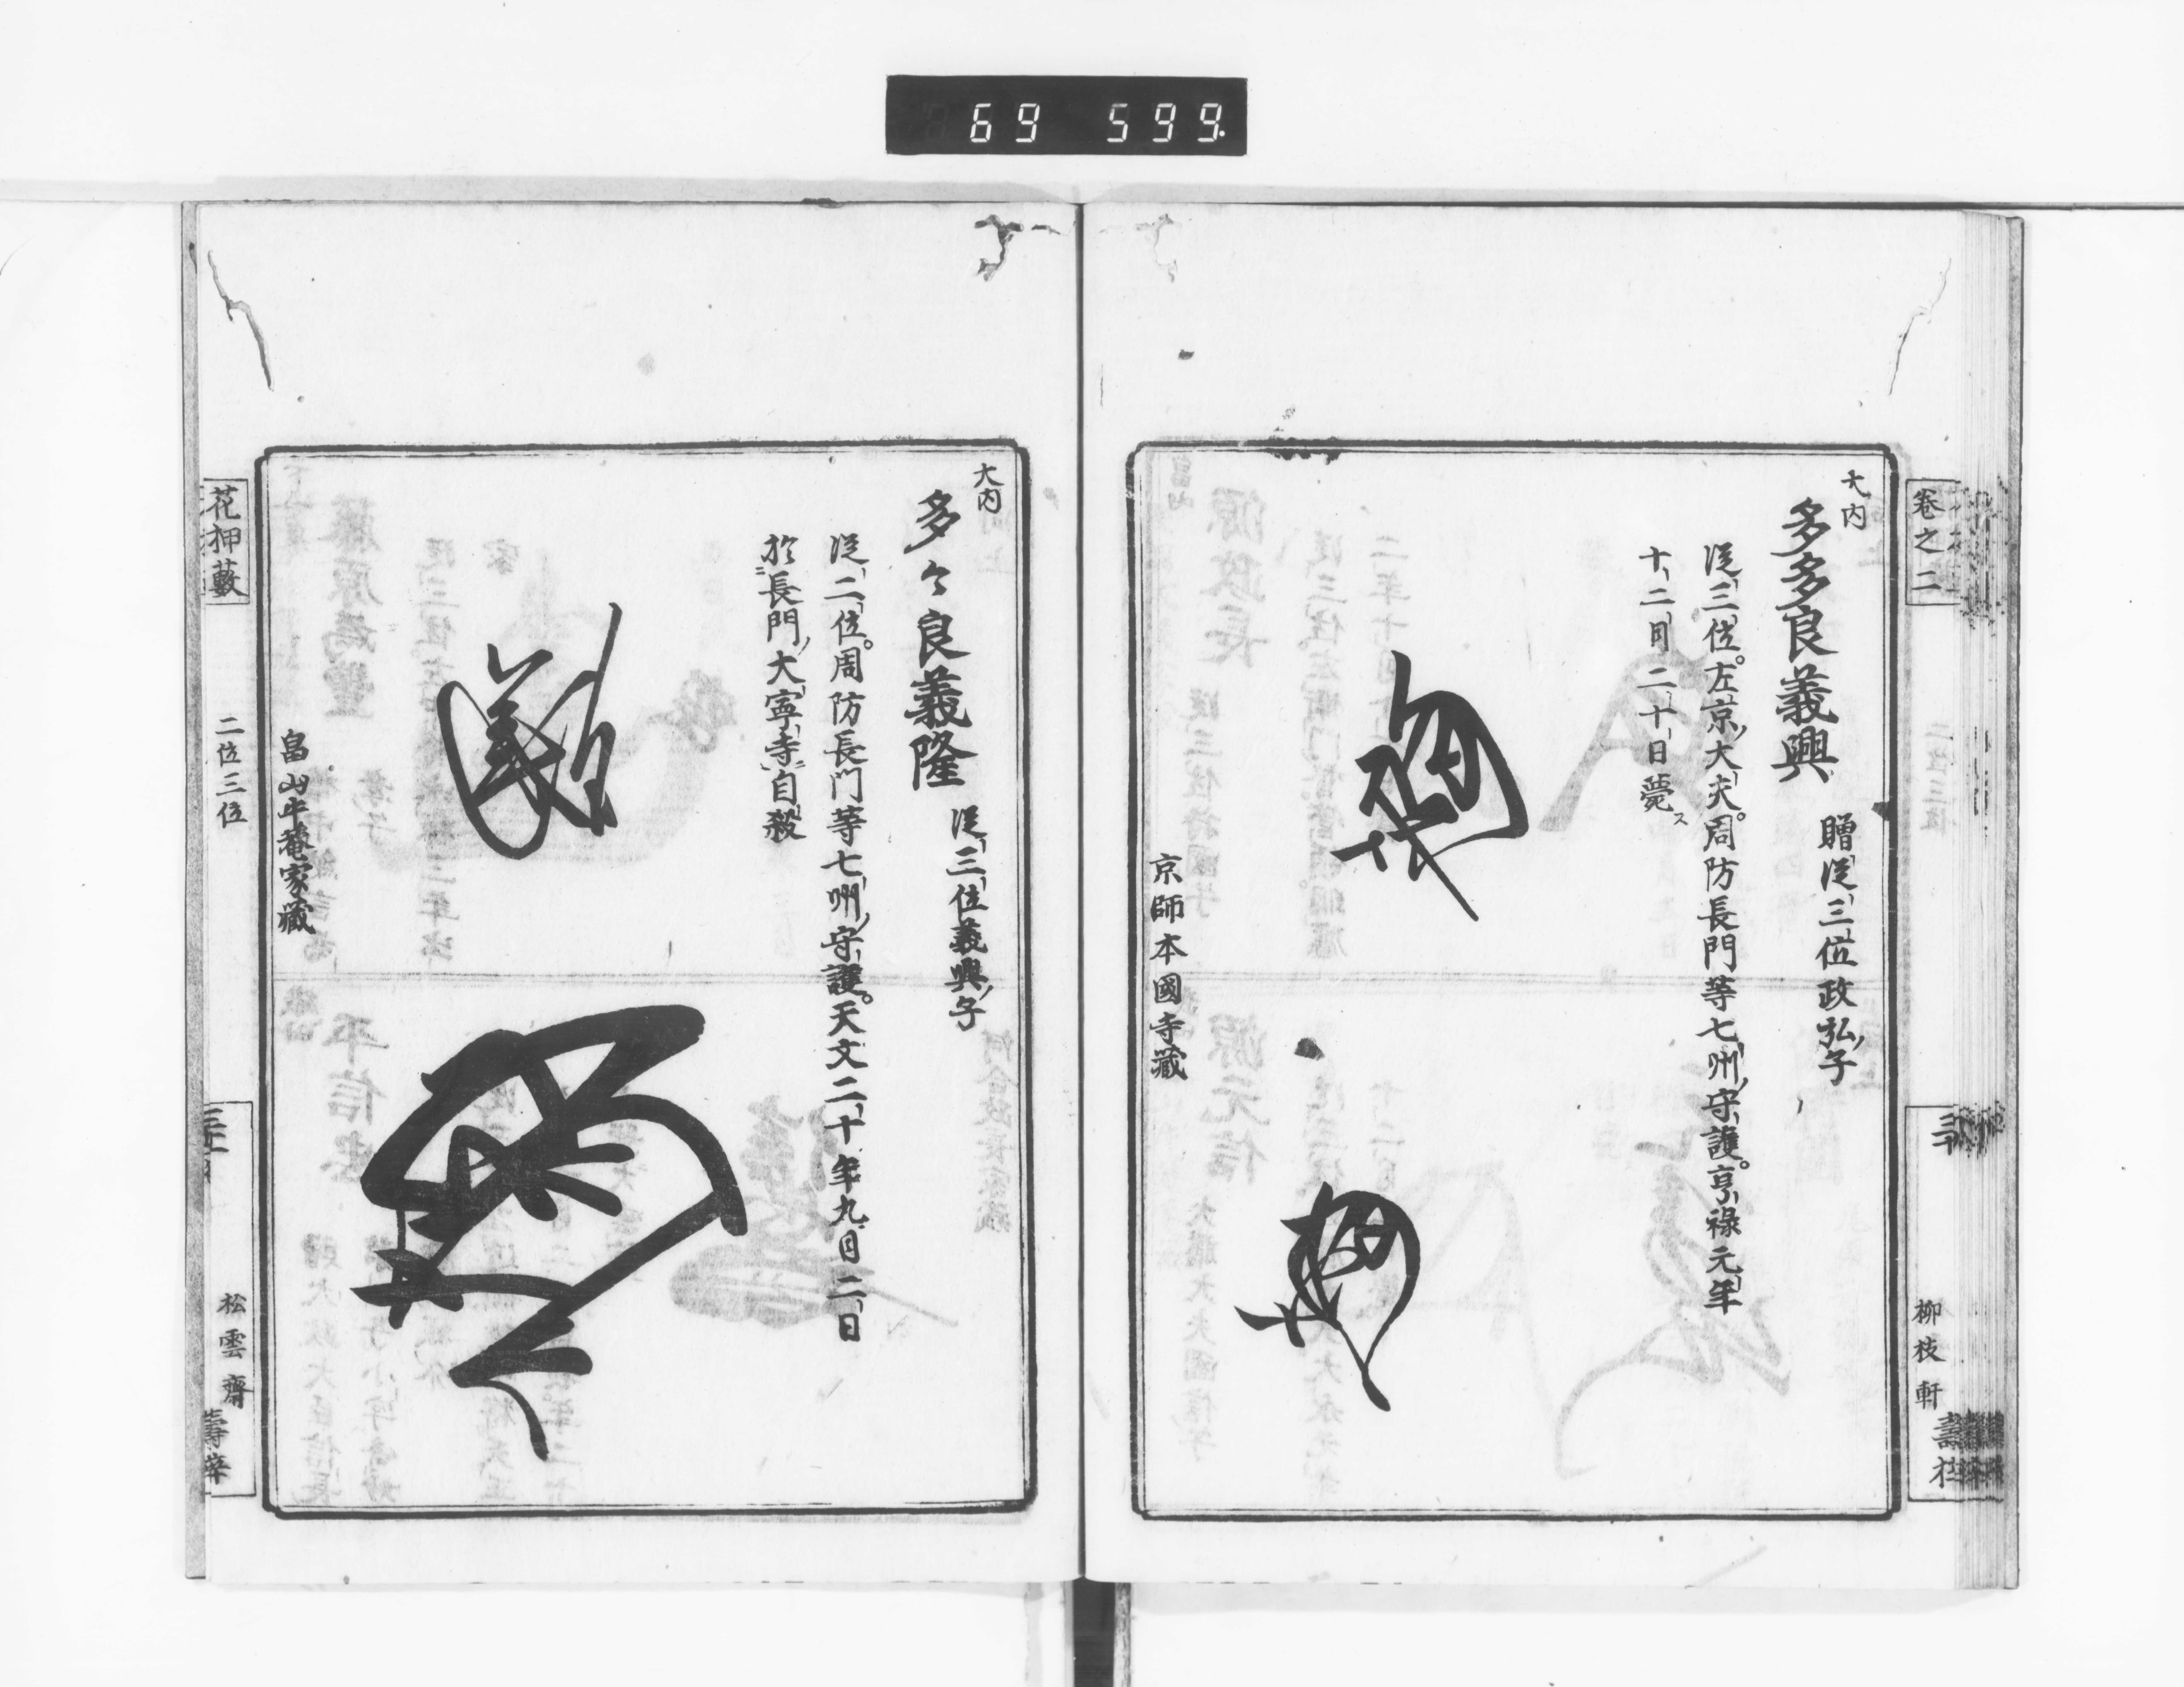 69 599.
卷之二
柳枝軒
大内
多多良義興
贈從三位政弘子
從三位。左京大夫。周防長門等七州守護。享祿元年
十二月二十日薨ス
京師本國寺藏
大内
多々良義隆
從三位義興子
從二位。周防長門等七州守護。天文二十年九月二日
於長門大寧寺自殺
畠山牛菴家藏
花押藪
二位三位
松雲齋